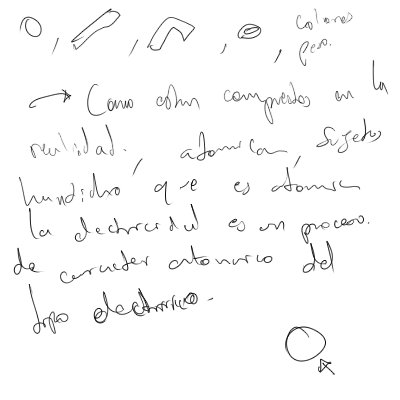 colores
peso.
Como están compuestos en la
realidad. atomica, sujetos
que es atomica
la electricidad es un proceso.
de caracter atomico del
tipo electrico.